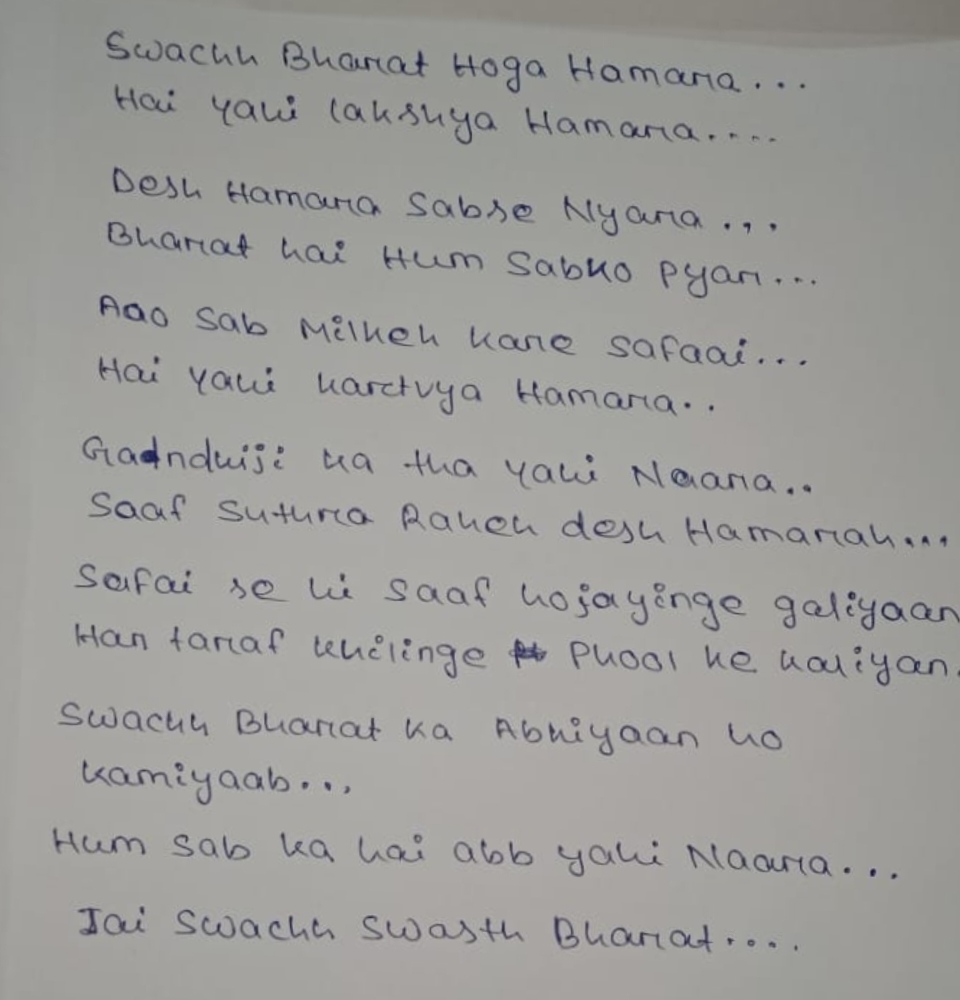 Swachh Bharat Hoga Hamara...
Hai yahi lakshya Hamara....
Desh Hamara Sabse Nyara ...
Bharat hai Hum Sabko pyar...
Aao Sab Milkeh kare safaai...
Hai yahi kartvya Hamara..
Gandhiji ka tha yahi Naara..
Saaf Suthra Raheh desh Hamarah...
Safai se hi saaf hojayinge galiyaan
Har taraf khilinge Phool ke kaliyan.
Swachh Bharat ka Abhiyaan ho
kamiyaab...
Hum sab ka hai abb yahi Naara...
Jai Swachh Swasth Bharat....